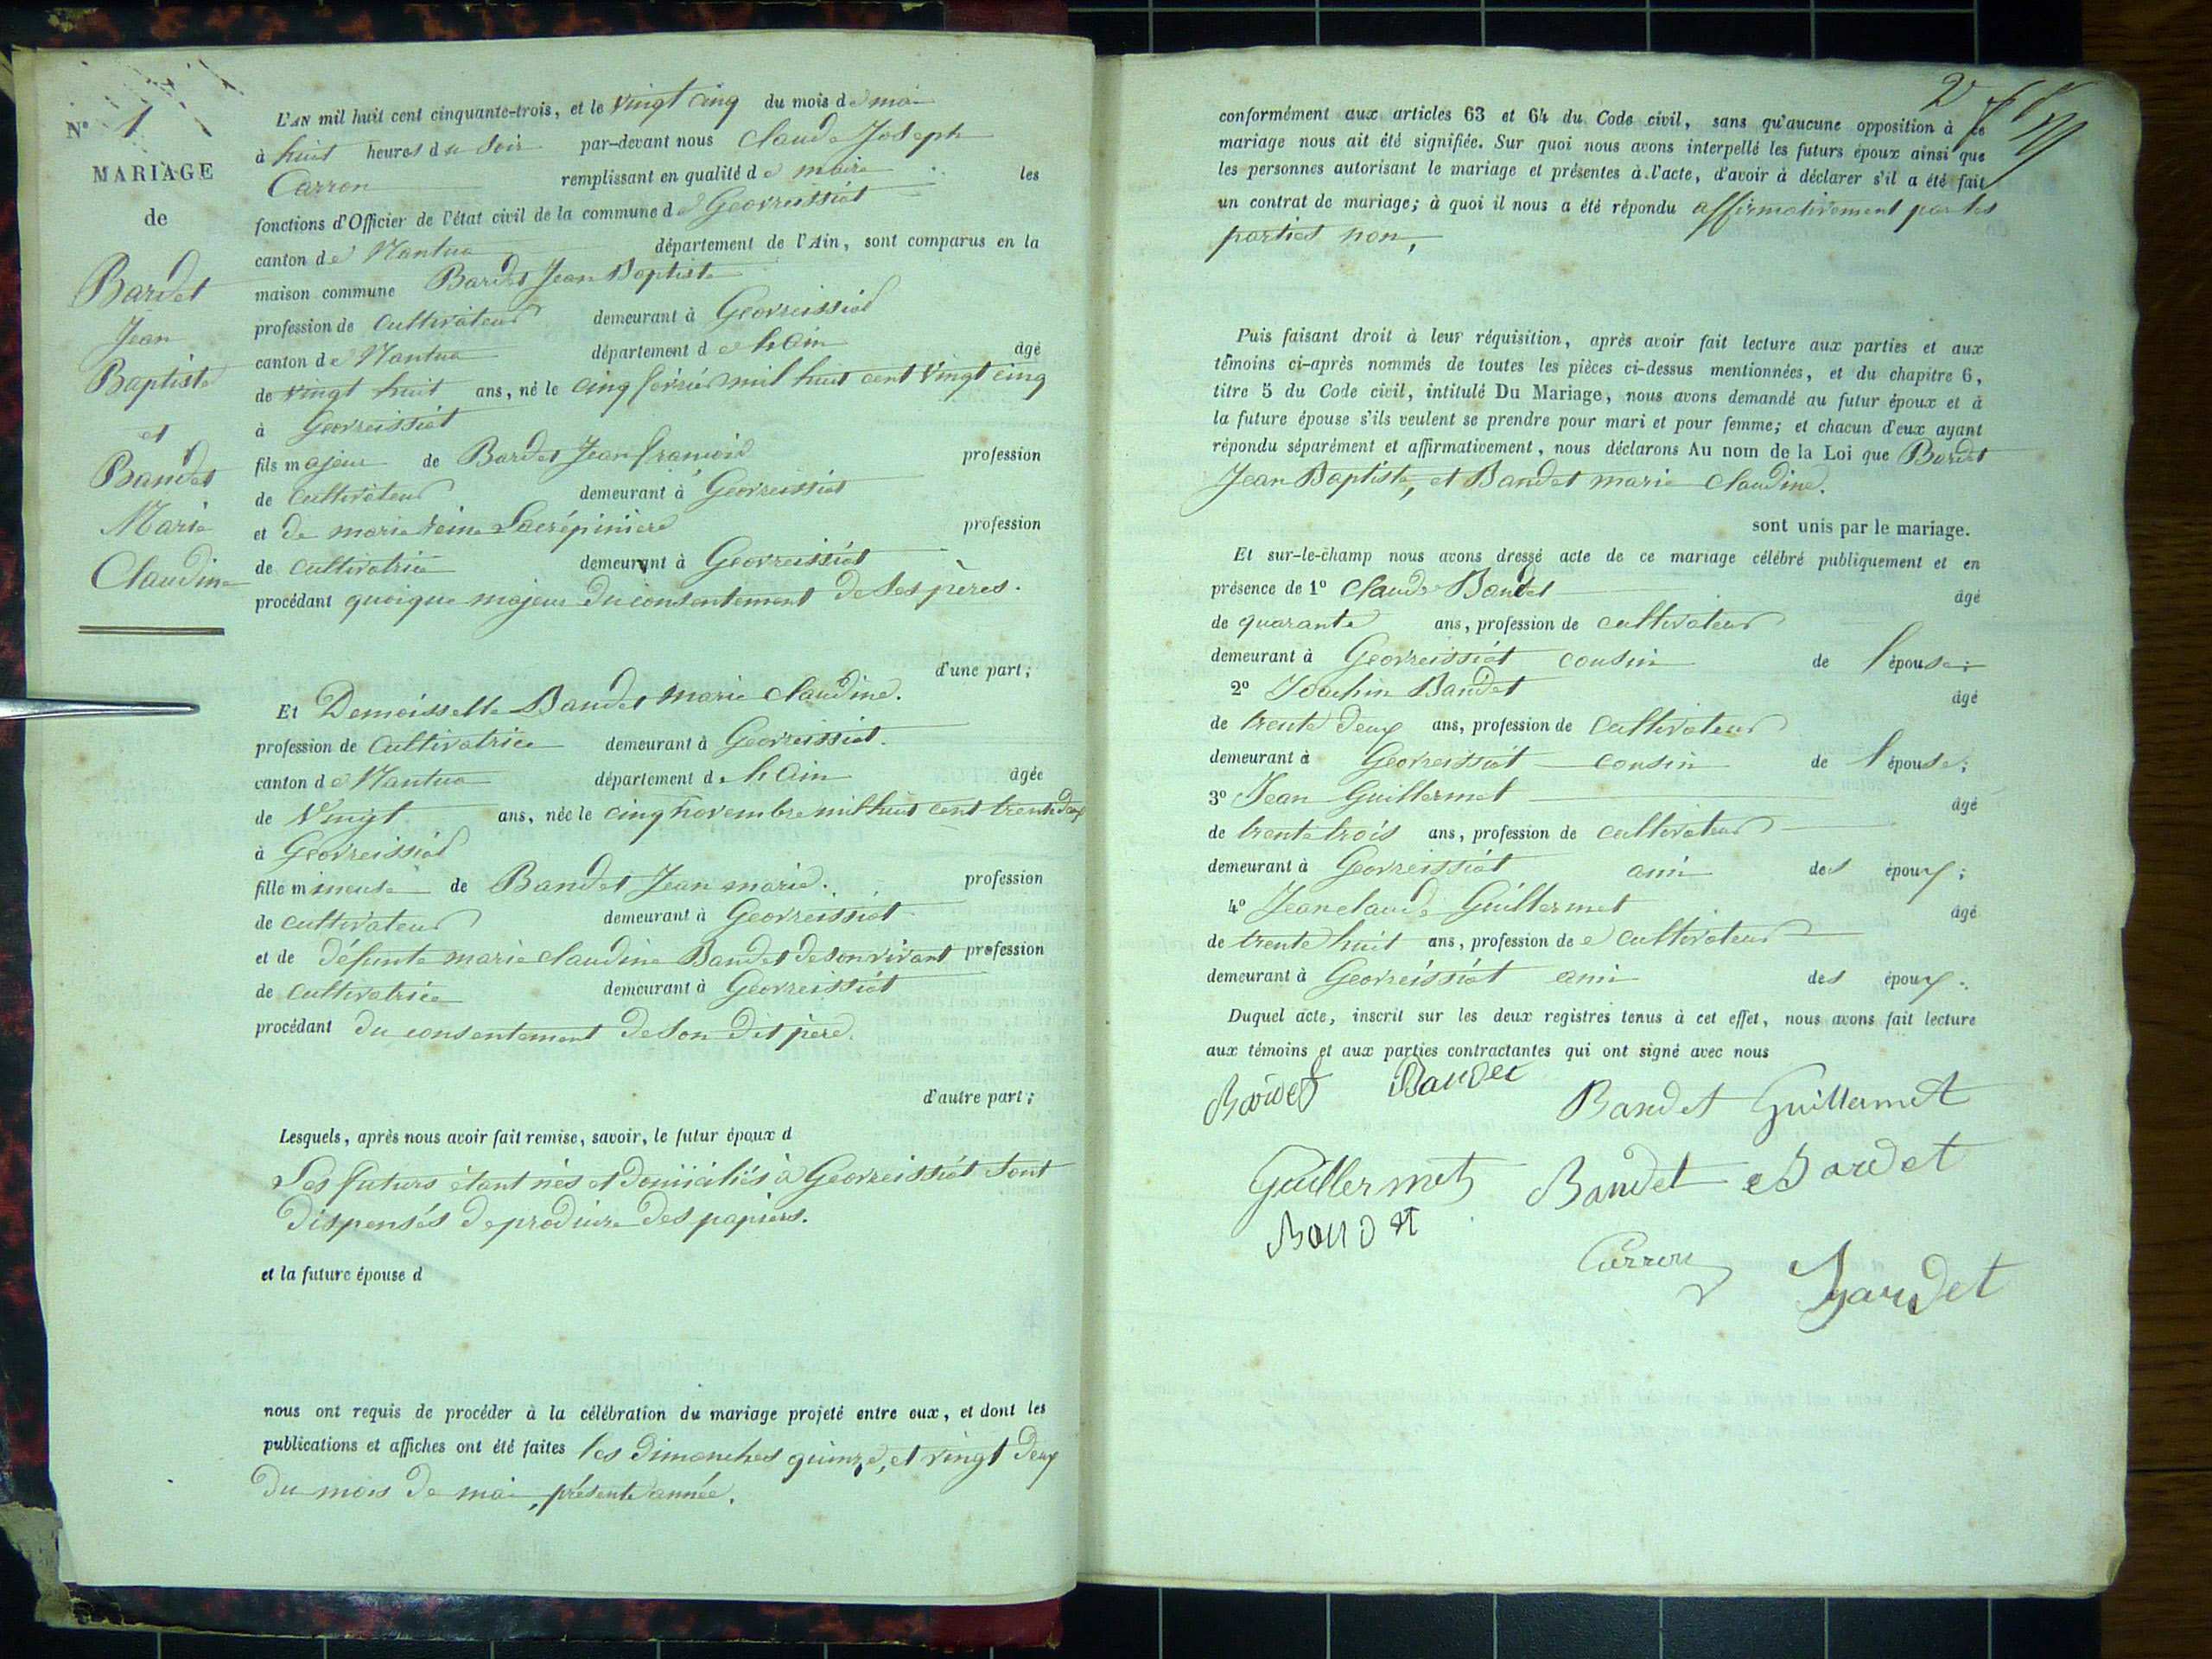 N° 1
MARIAGE
de
Bardet
Jean
Baptiste
et
Baudet
Marie
Claudine
L'AN mil huit cent cinquante-trois, et le vingt cinq du mois de mai
à huit heures du soir par-devant nous Claude Joseph
Carron remplissant en qualité de maire les
fonctions d'Officier de l'état civil de la commune de Geovreissiat
canton de Nantua département de l'Ain, sont comparus en la
maison commune Bardet Jean Baptiste
profession de cultivateur demeurant à Geovreissiat
canton de Nantua département de l'Ain âgé
de vingt huit ans, né le cinq février mil huit cent vingt cinq
à Geovreissiat
fils majeur de Bardet Jean françois profession
de cultivateur demeurant à Geovreissiat
et de marie reine Lacrépiniere profession
de cultivatrice demeurant à Geovreissiat
procédant quoique majeur du consentement de ses pères.
d'une part;
Et Demoisselle Baudet marie claudine.
profession de Cultivatrice demeurant à Geovreissiat.
canton de Nantua département de l'Ain âgée
de Vingt ans, née le cinq novembre mil huit cent trente deux
à Geovreissiat
fille mineure de Baudet Jean marie. profession
de cultivateur demeurant à Geovreissiat
et de défunte marie claudine Baudet de son vivant profession
de cultivatrice demeurant à Geovreissiat
procédant du consentement de son dit père.
d'autre part;
Lesquels, après nous avoir fait remise, savoir, le futur époux d
Les futurs étant nés et domiciliés à Geovreissiat sont
dispensés de produire des papiers.
et la future épouse d
nous ont requis de procéder à la célébration du mariage projeté entre eux, et dont les
publications et affiches ont été faites les dimanches quinze, et vingt deux
du mois de mai, présente année.
2
conformément aux articles 63 et 64 du Code civil, sans qu'aucune opposition à ce
mariage nous ait été signifiée. Sur quoi nous avons interpellé les futurs époux ainsi que
les personnes autorisant le mariage et présentes à l'acte, d'avoir à déclarer s'il a été fait
un contrat de mariage; à quoi il nous a été répondu affirmativement par les
parties non,
Puis faisant droit à leur réquisition, après avoir fait lecture aux parties et aux
témoins ci-après nommés de toutes les pièces ci-dessus mentionnées, et du chapitre 6,
titre 5 du Code civil, intitulé Du Mariage, nous avons demandé au futur époux et à
la future épouse s'ils veulent se prendre pour mari et pour femme; et chacun d'eux ayant
répondu séparément et affirmativement, nous déclarons Au nom de la Loi que Bardet
Jean Baptiste, et Baudet marie claudine.
sont unis par le mariage.
Et sur-le-champ nous avons dressé acte de ce mariage célébré publiquement et en
présence de 1° Claude Baudet âgé
de quarante ans, profession de cultivateur
demeurant à Geovreissiat cousin de l'épouse;
2° Joachin Baudet âgé
de trente deux ans, profession de cultivateur
demeurant à Geovreissiat cousin de l'épouse;
3° Jean Guillermet âgé
de trente trois ans, profession de cultivateur
demeurant à Geovreissiat ami des époux;
4° Jean claude Guillermet âgé
de trente huit ans, profession de cultivateur
demeurant à Geovreissiat ami des époux.
Duquel acte, inscrit sur les deux registres tenus à cet effet, nous avons fait lecture
aux témoins et aux parties contractantes qui ont signé avec nous
Bardet Baudet
Baudet Guillermet
Guillermet Baudet Bardet
Baudet
Carron Baudet